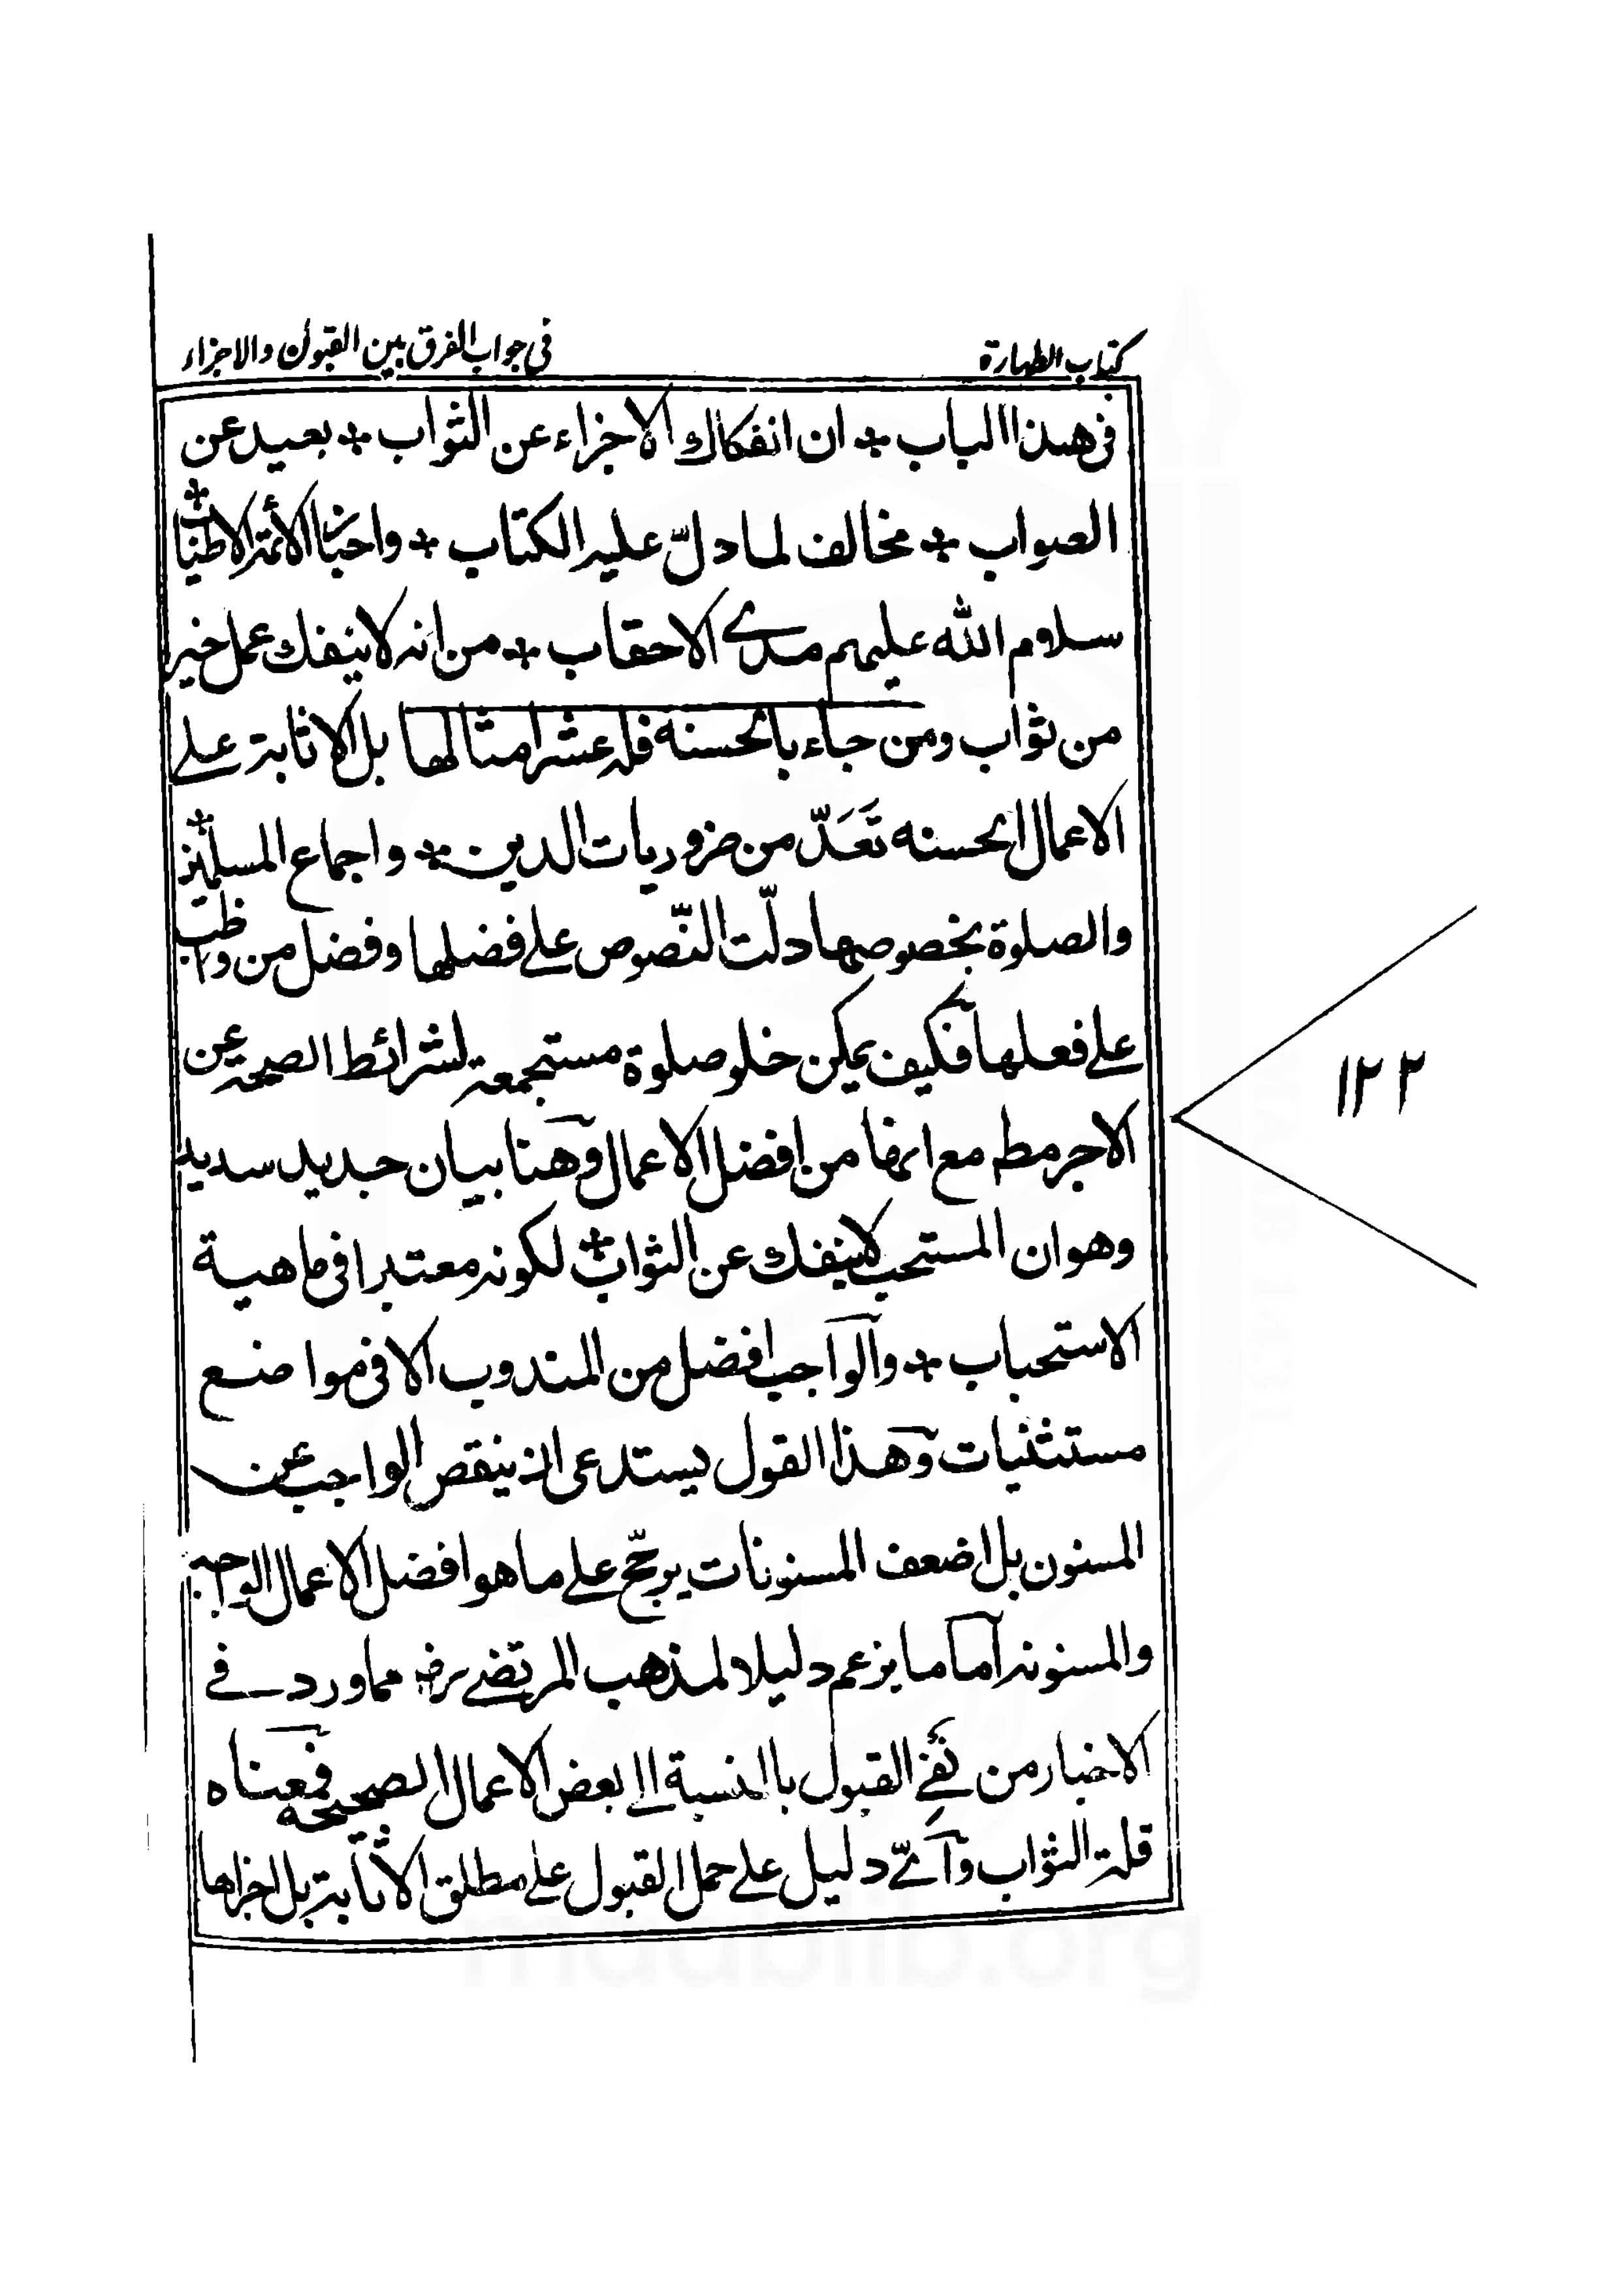 كتاب الطهارة
في جواب الفرق بين القبول والاجزاء
في هذا الباب * ان انفكاك الاجزاء عن الثواب * بعيد عن
الصواب * مخالف لما دلّ عليه الكتاب * واخبار الأئمة الاطياب *
سلام الله عليهم مدى الاحقاب * من انه لا ينفك عمل خير
من ثواب ومن جاء بالحسنة فله عشر امثالها بل الاثابة على
الاعمال الحسنه تَعَدّ من ضروريات الدين * واجماع المسلمين *
والصلوة بخصوصها دلّت النّصوص على فضلها وفضل من واظب
على فعلها فكيف يمكن خلو صلوة مستجمعة لشرائط الصحة عن
الاجر مط مع انها من افضل الاعمال وهنا بيان جديد سديد
وهو ان المستحب لا ينفك عن الثواب * لكونه معتبرا في ماهية
الاستحباب * والواجب افضل من المندوب الا في مواضع
مستثنيات وهذا القول يستدعى ان ينقص الواجب عن
المسنون بل اضعف المسنونات يرجّح على ما هو افضل الاعمال الواجبة
والمسنونه اما ما يزعم دليلا لمذهب المرتضى رض مما ورد في
الاخبار من نفي القبول بالنسبة الى بعض الاعمال الصحيحة فمعناه
قلة الثواب وآيّ دليل على حمل القبول على مطلق الاثابة بل اجزاها
١٢٢
maablib.org
MAAB 1431